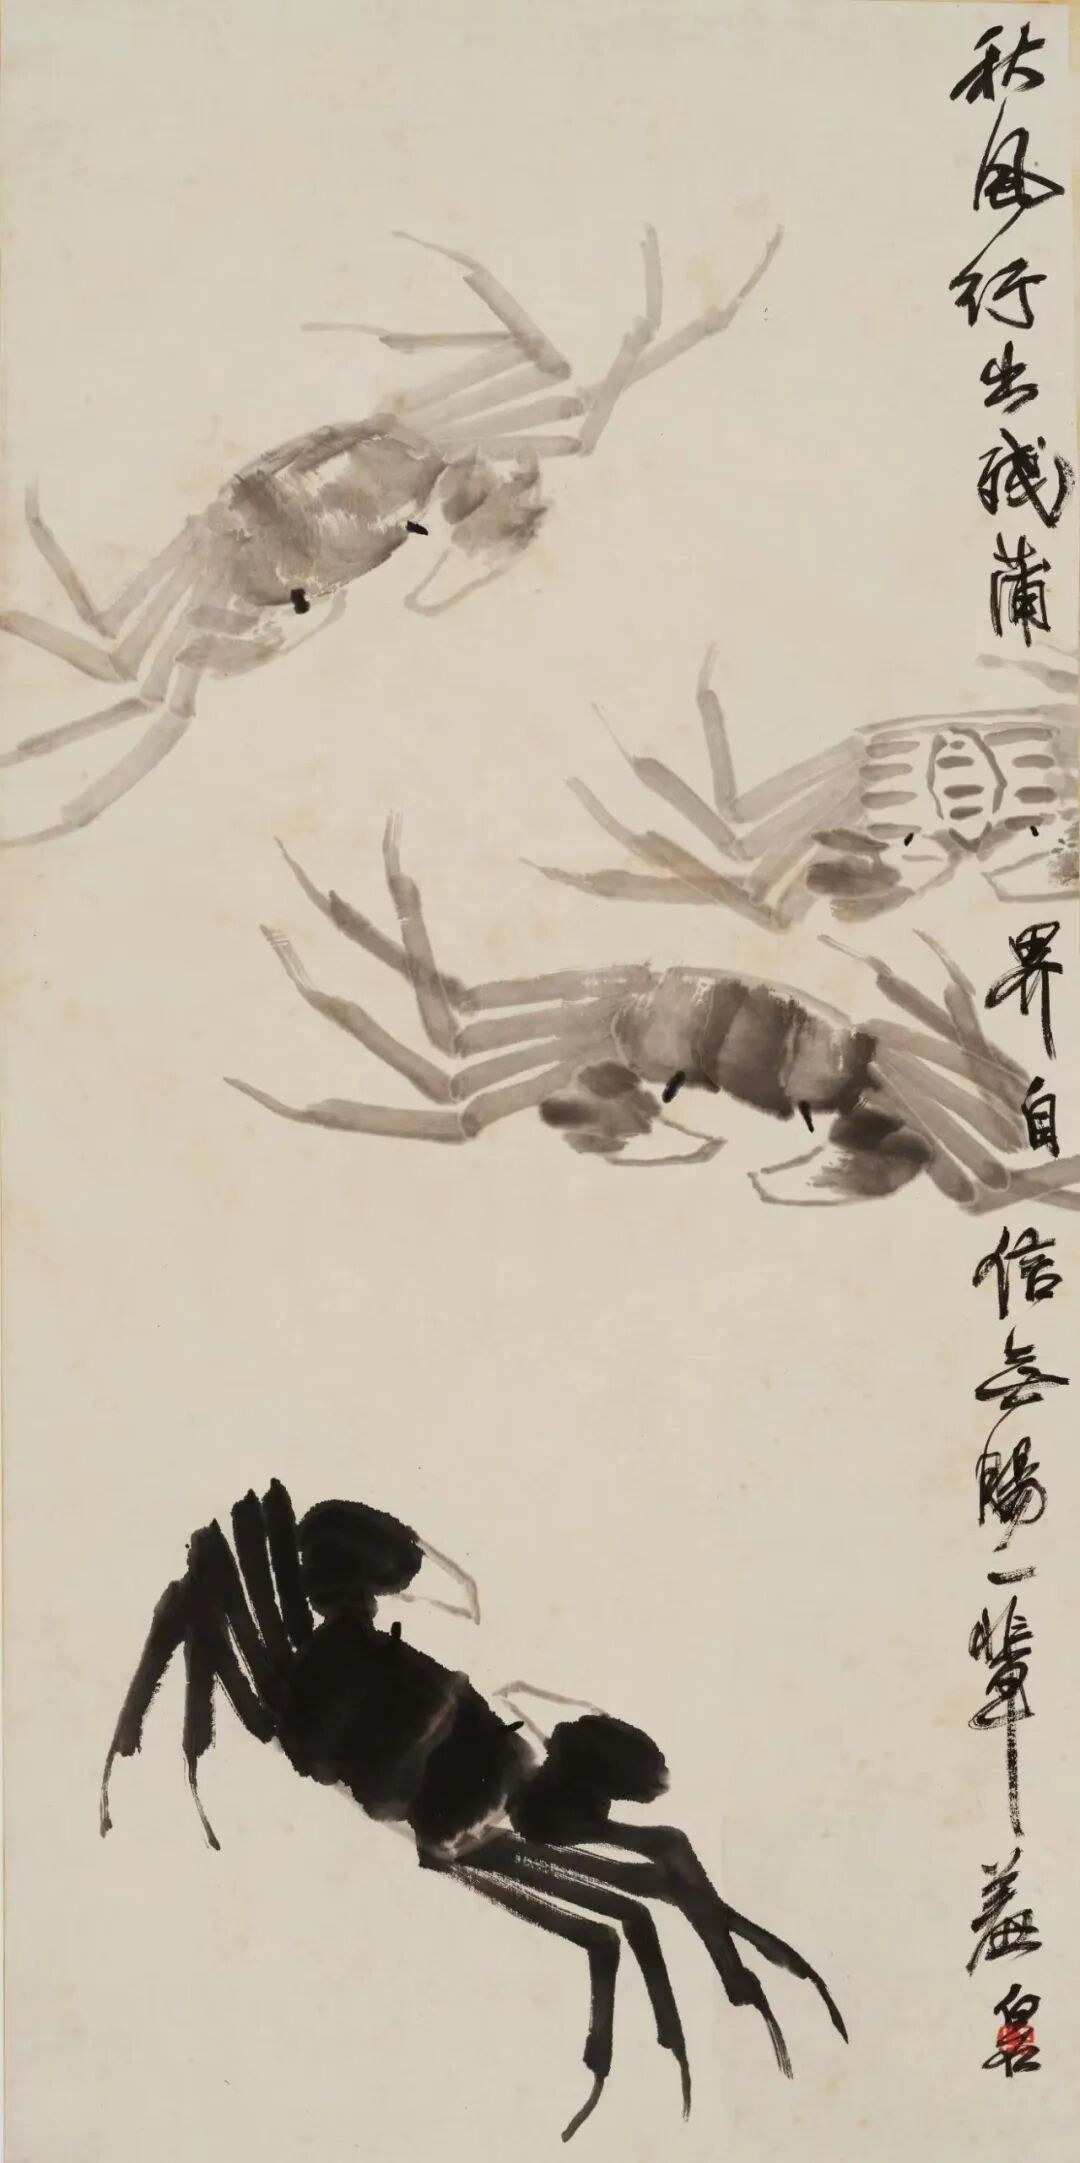 秋風行出殘蒲界自信無腸一輩羞白石